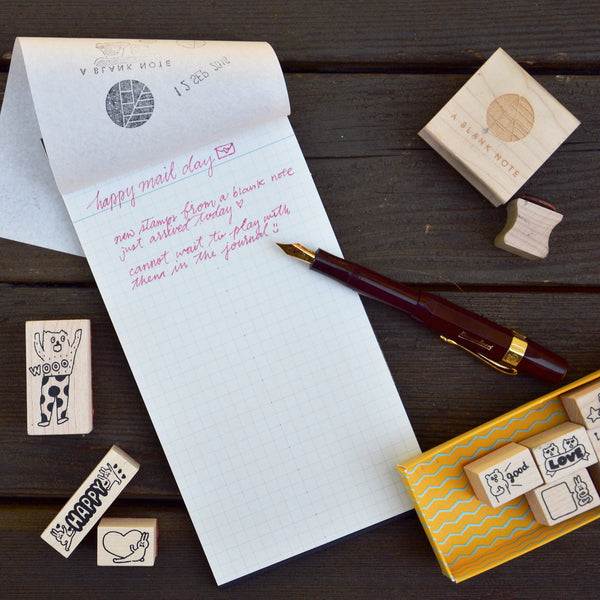 A BLANK NOTE
12 SEP 2016
happy mail day
new stamps from a blank note
just arrived today ♡
cannot wait to play with
them in the journal :)
A BLANK NOTE
WOOO
HAPPY
good
LOVE